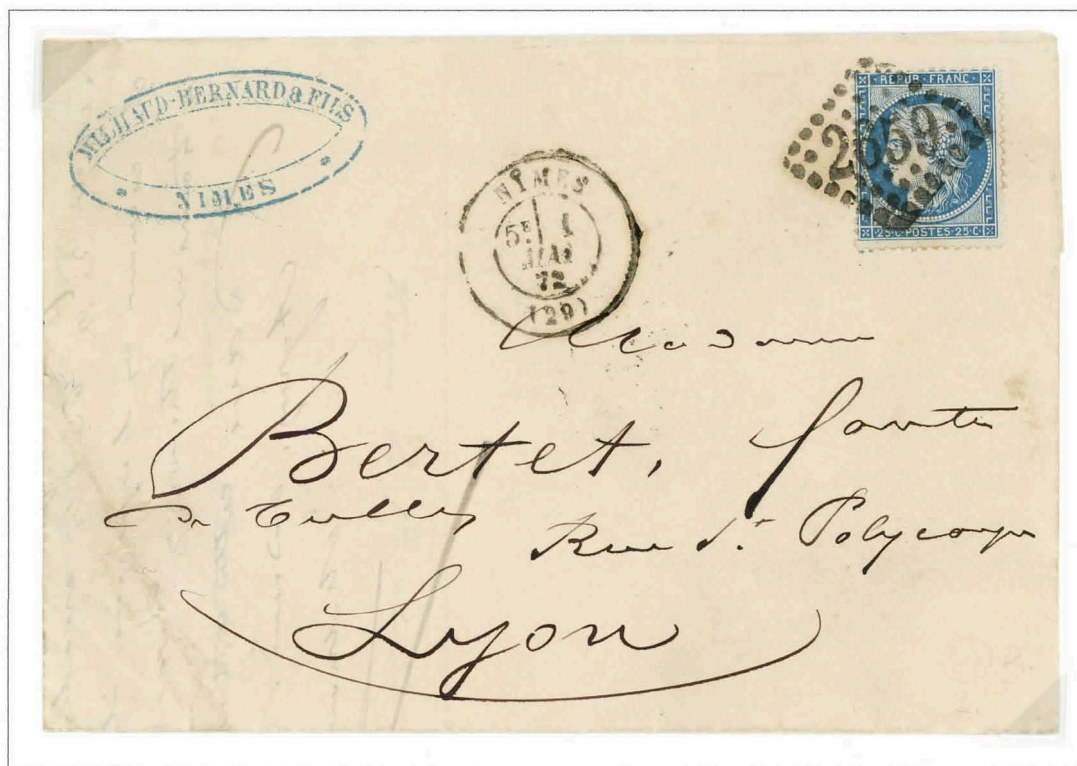 MILHAUD-BERNARD & FILS
NIMES
NIMES
5E 1
MAI
72
(29)
REPUB. FRANC
2659
25 C. POSTES 25 C.
Madame
Bertet,
de Tulles
Rue St. Polycarpe
Lyon